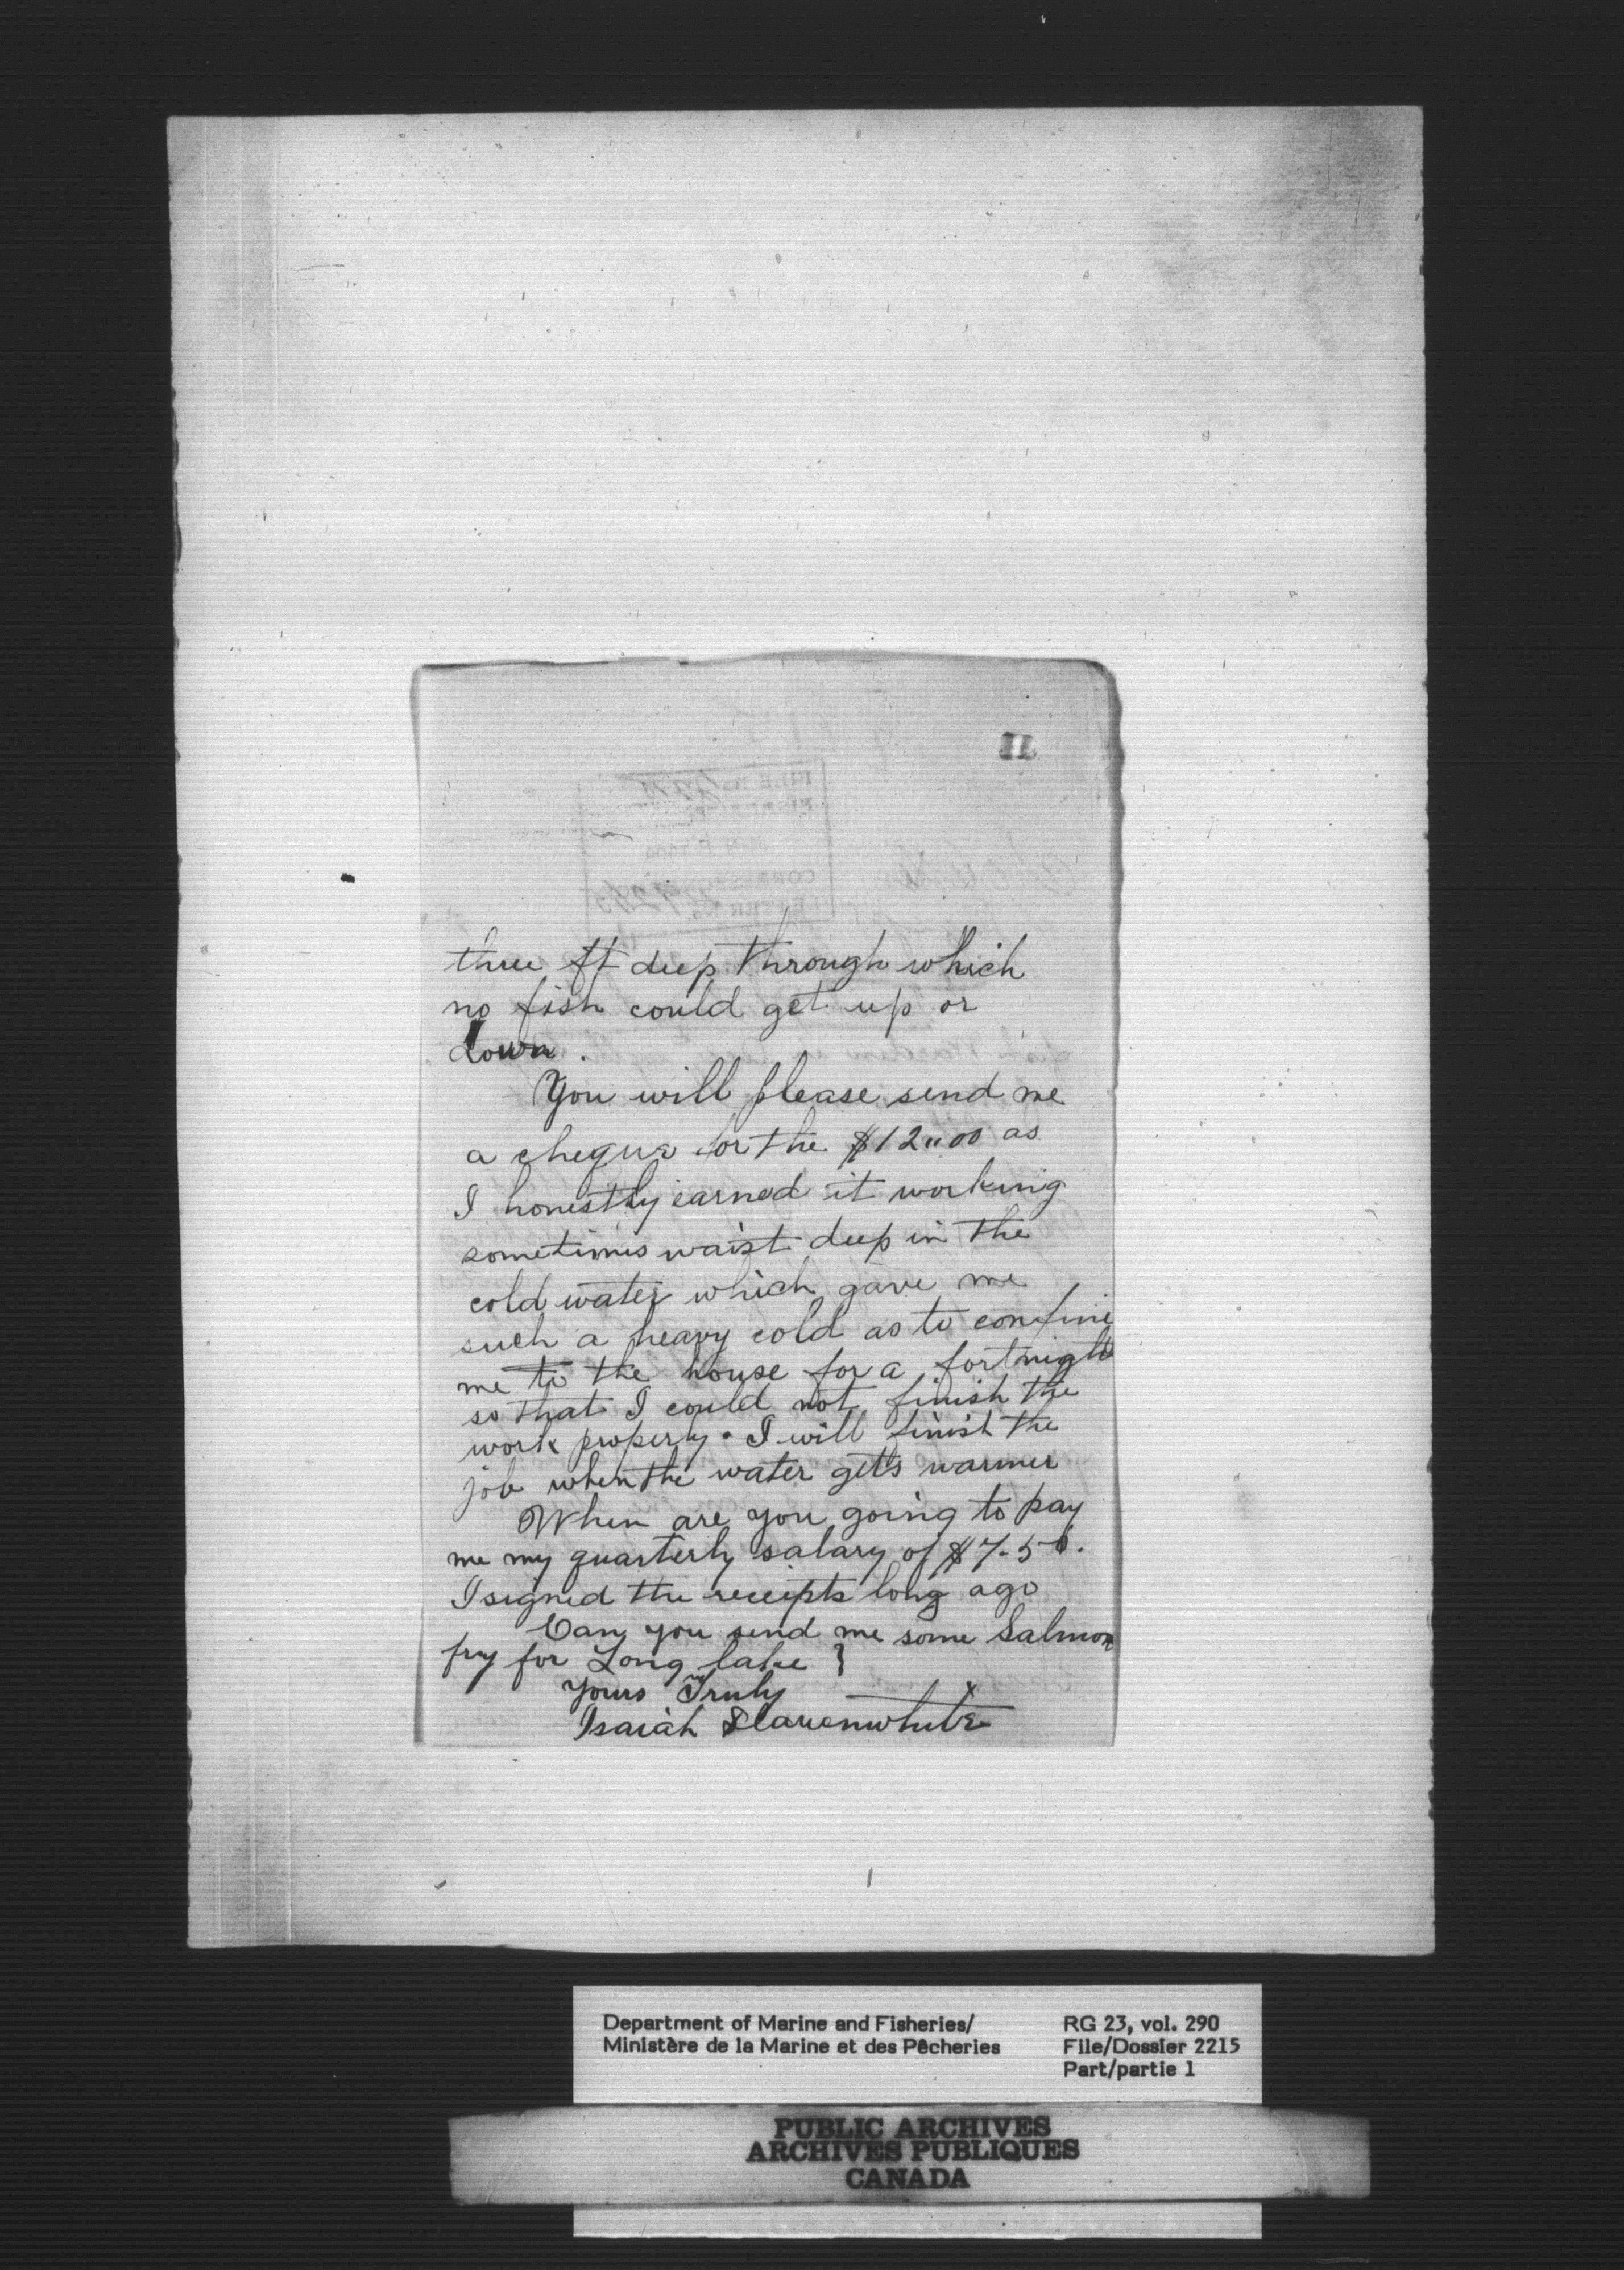 11
three ft deep through which
no fish could get up or
down.
You will please send me
a cheque for the $12.00 as
I honestly earned it working
sometimes waist deep in the
cold water which gave me
such a heavy cold as to confine
me to the house for a fortnight
so that I could not finish the
work properly. I will finish the
job when the water gets warmer
When are you going to pay
me my quarterly salary of $7.50.
I signed the receipts long ago
Can you send me some Salmon
fry for Long lake
Yours Truly
Isaiah Slauenwhite
Department of Marine and Fisheries/
Ministère de la Marine et des Pêcheries
RG 23, vol. 290
File/Dossier 2215
Part/partie 1
PUBLIC ARCHIVES
ARCHIVES PUBLIQUES
CANADA